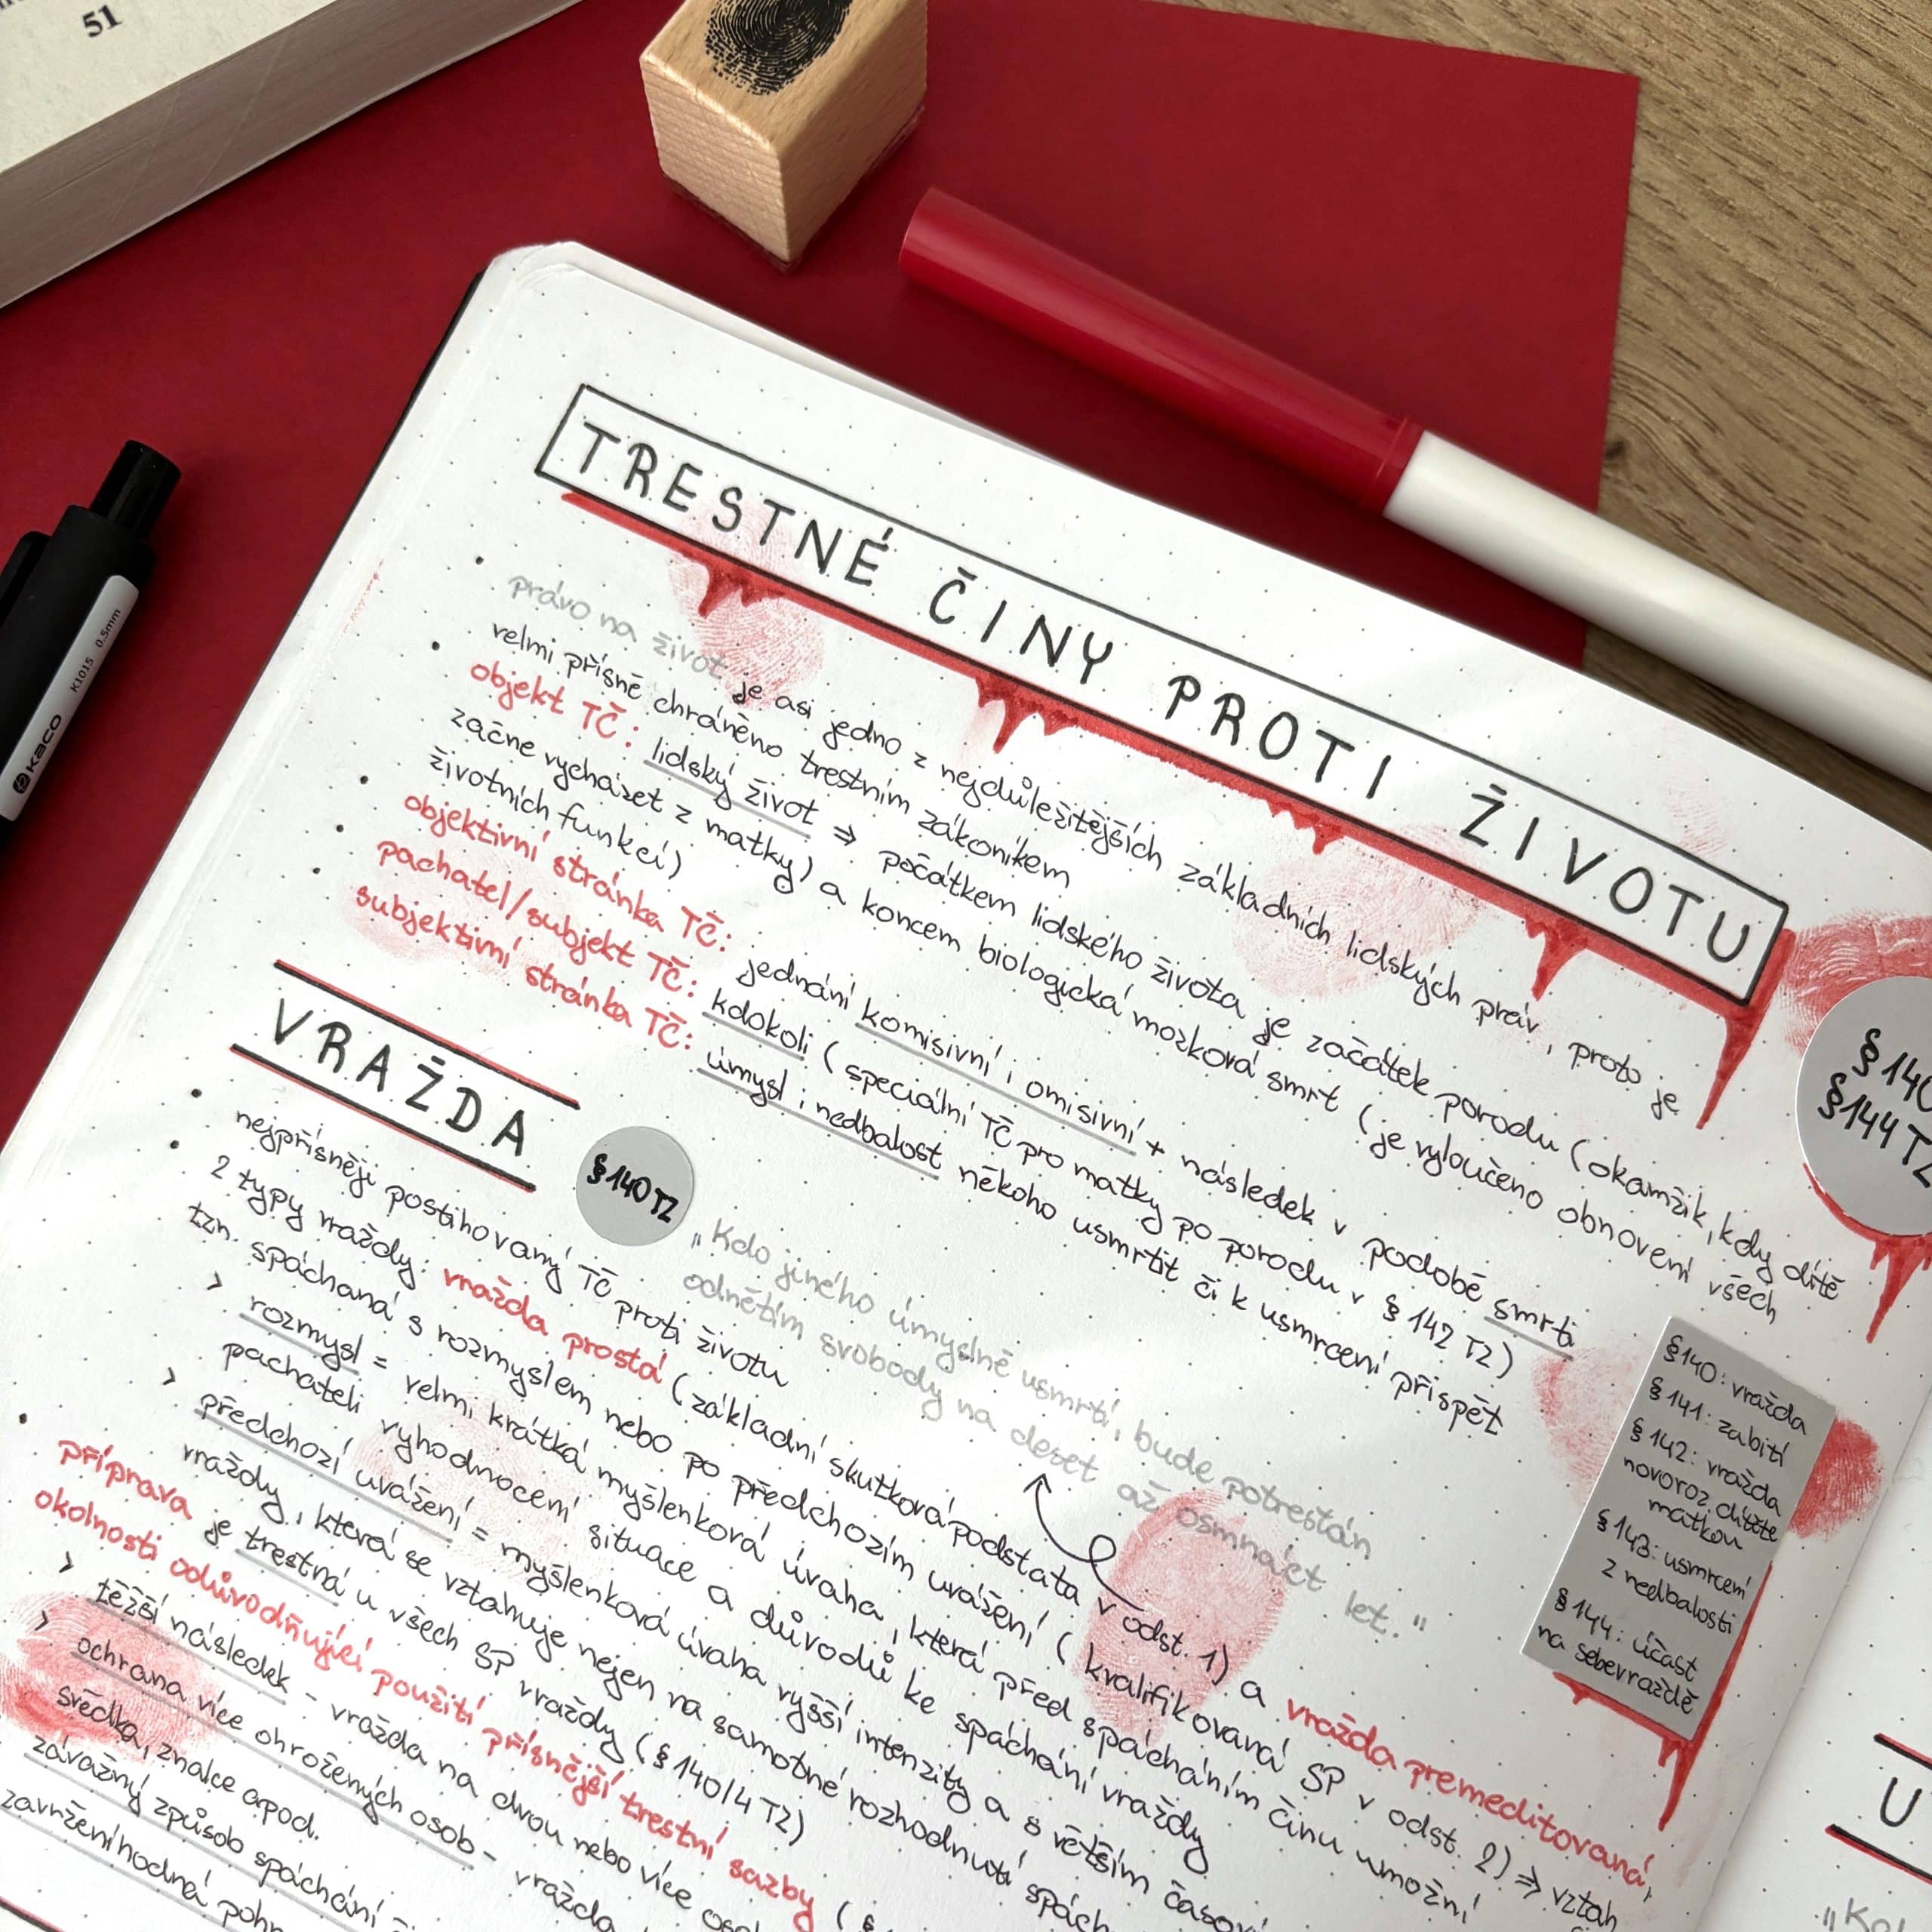 51
kaco K1015 0.5mm
TRESTNÉ ČINY PROTI ŽIVOTU
§144 TZ
právo na život je asi jedno z nejdůležitějších základních lidských práv, proto je
velmi přísně chráněno trestním zákoníkem
objekt TČ: lidský život ⇒ počátkem lidského života je začátek porodu (okamžik, kdy dítě
začne vycházet z matky) a koncem biologická mozková smrt (je vyloučeno obnovení všech
životních funkcí)
objektivní stránka TČ: jednání komisivní i omisivní + následek v podobě smrti
pachatel/subjekt TČ: kdokoli (speciální TČ pro matky po porodu v § 142 TZ)
subjektivní stránka TČ: úmysl i nedbalost někoho usmrtit či k usmrcení přispět
VRAŽDA
§ 140 TZ
„Kdo jiného úmyslně usmrtí, bude potrestán
odnětím svobody na deset až osmnáct let."
§140: vražda
§ 141: zabití
§ 142: vražda
novoroz. dítěte
matkou
§ 143: usmrcení
z nedbalosti
§ 144: účast
na sebevraždě
nejpřísněji postihovaný TČ proti životu
2 typy vraždy: vražda prostá (základní skutková podstata v odst. 1) a vražda premeditovaná,
tzn. spáchaná s rozmyslem nebo po předchozím uvážení (kvalifikovaná SP v odst. 2) ⇒ vztah
> rozmysl = velmi krátká myšlenková úvaha, která před spácháním činu umožní
pachateli vyhodnocení situace a důvodů ke spáchání vraždy
> předchozí uvážení = myšlenková úvaha vyšší intenzity a s větším
vraždy, která se vztahuje nejen na samotné rozhodnutí
příprava je trestná u všech SP vraždy (§ 140/4 TZ)
okolnosti odůvodňující použití přísnější trestní sazby (
> těžší následek - vražda na dvou nebo více
> ochrana více ohrožených osob - vražda
svědka, znalce apod.
závažný způsob spáchání
zavrženíhodná
U